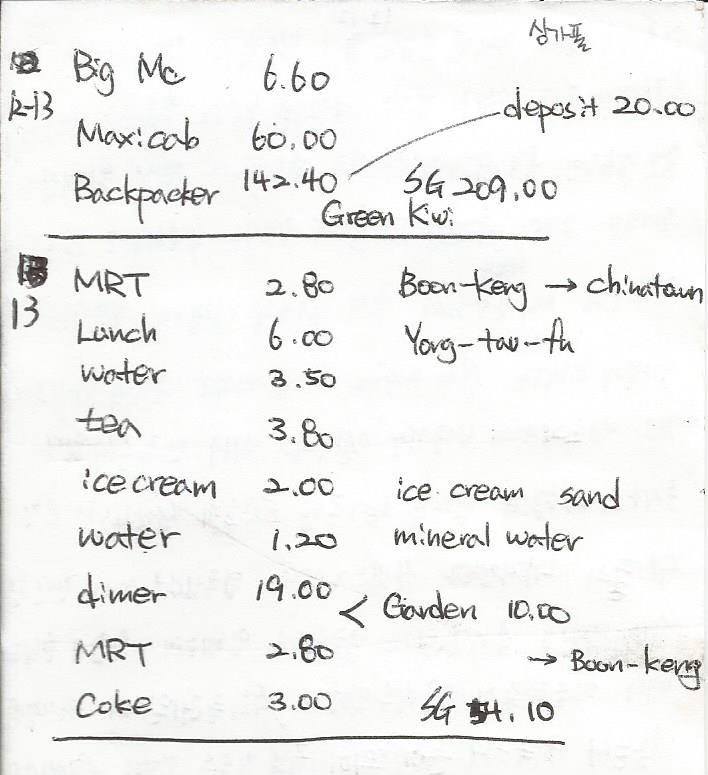 싱가폴
Big Mc 6.60
12-13 deposit 20.00
Maxicab 60.00
Backpacker 142.40 SG 209.00
Green Kiwi
MRT 2.80 Boon-keng → chinatown
13
Lunch 6.00 Yong-tau-fu
water 3.50
tea 3.80
ice cream 2.00 ice cream sand
water 1.20 mineral water
dinner 19.00 < Garden 10.00
MRT 2.80 → Boon-keng
Coke 3.00 SG 54.10